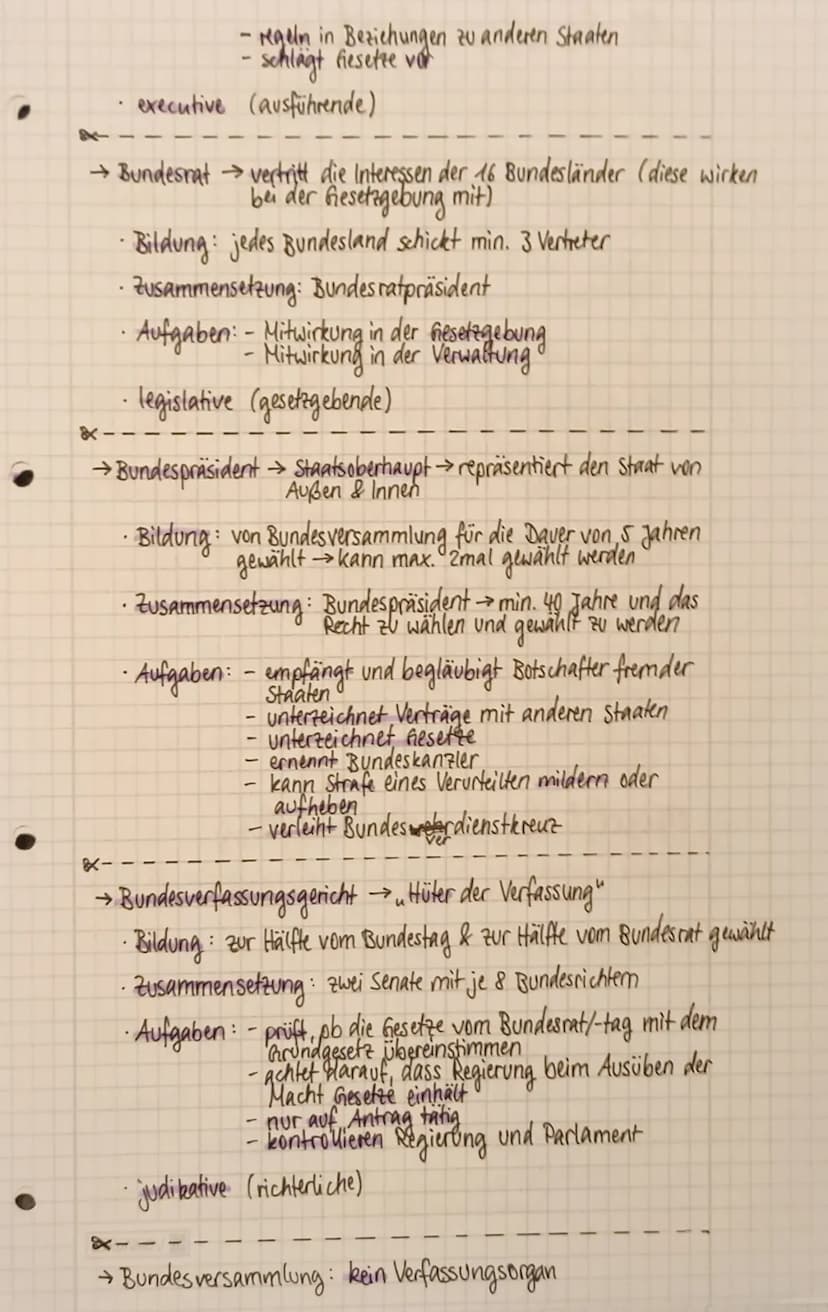 - regeln in Beziehungen zu anderen Staaten
- schlägt Gesetze vor
· executive (ausführende)
→ Bundesrat → vertritt die Interessen der 16 Bundesländer (diese wirken
bei der Gesetzgebung mit)
· Bildung: jedes Bundesland schickt min. 3 Vertreter
· Zusammensetzung: Bundesratpräsident
· Aufgaben: - Mitwirkung in der Gesetzgebung
- Mitwirkung in der Verwaltung
· legislative (gesetzgebende)
→ Bundespräsident → Staatsoberhaupt → repräsentiert den Staat von
Außen & Innen
· Bildung: von Bundesversammlung für die Dauer von 5 Jahren
gewählt → kann max. 2mal gewählt werden
· Zusammensetzung: Bundespräsident → min. 40 Jahre und das
Recht zu wählen und gewählt zu werden
· Aufgaben: - empfängt und begläubigt Botschafter fremder
Staaten
- unterzeichnet Verträge mit anderen Staaten
- unterzeichnet Gesetze
- ernennt Bundeskanzler
- kann Strafe eines Verurteilten mildern oder
aufheben
- verleiht Bundesverdienstkreuz
→ Bundesverfassungsgericht → „Hüter der Verfassung“
· Bildung: zur Hälfte vom Bundestag & zur Hälfte vom Bundesrat gewählt
· Zusammensetzung: zwei Senate mit je 8 Bundesrichtern
· Aufgaben: - prüft, ob die Gesetze vom Bundesrat/-tag mit dem
Grundgesetz übereinstimmen
- achtet darauf, dass Regierung beim Ausüben der
Macht Gesetze einhält
- nur auf Antrag tätig
- kontrollieren Regierung und Parlament
· judikative (richterliche)
→ Bundesversammlung: kein Verfassungsorgan